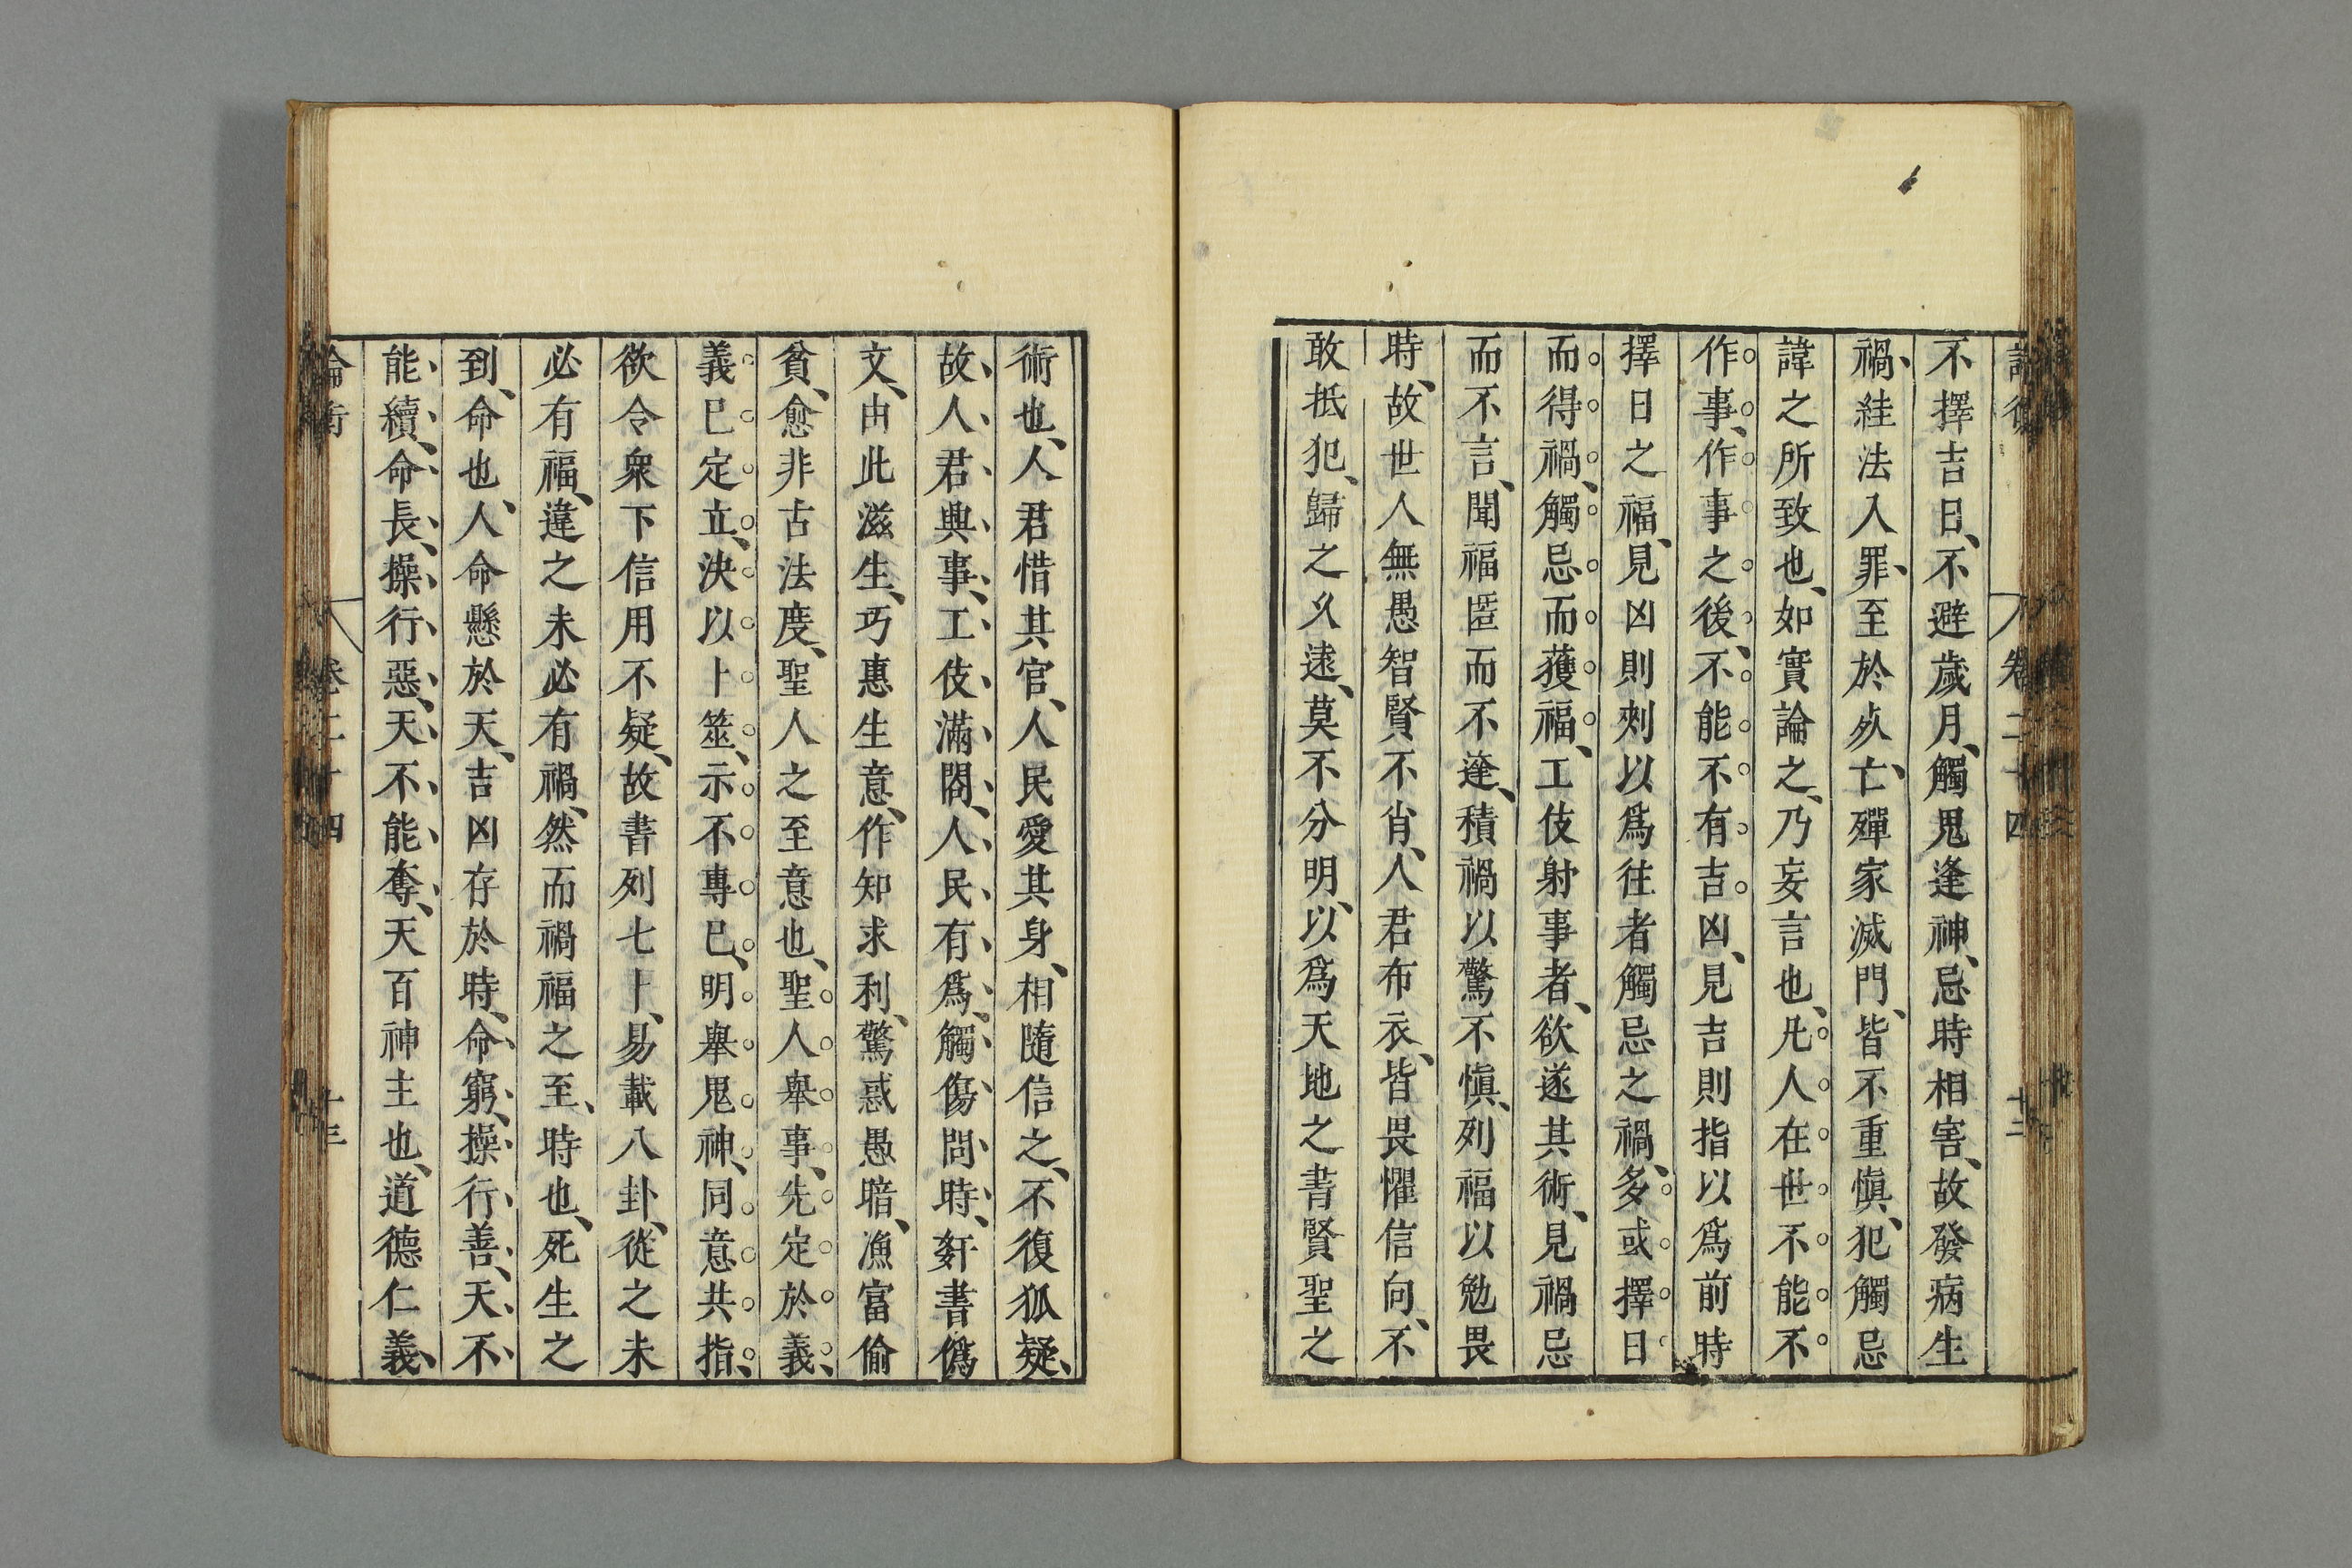 論衡 卷二十四 十二
不擇吉日、不避歲月、觸鬼逢神、忌時相害、故發病生
禍、絓法入罪、至於死亡、殫家滅門、皆不重慎、犯觸忌
諱之所致也、如實論之、乃妄言也、凡人在世不能不
作事、作事之後、不能不有吉凶、見吉則指以爲前時
擇日之福、見凶則刾以爲徃者觸忌之禍、多或擇日
而得禍、觸忌而獲福、工伎射事者、欲遂其術、見禍忌
而不言、聞福匿而不逹、積禍以驚不慎、列福以勉畏
時、故世人無愚智賢不肖、人君布衣、皆畏懼信向、不
敢抵犯、歸之乆遠、莫不分明、以爲天地之書賢聖之
術也、人君惜其官、人民愛其身、相隨信之、不復狐疑、
故人君興事、工伎滿閤、人民有爲、觸傷問時、奸書僞
文、由此滋生、巧惠生意、作知求利、驚惑愚暗、漁富偷
貧、愈非古法度、聖人之至意也、聖人舉事、先定於義、
義巳定立、決以卜筮、示不專巳、明舉鬼神、同意共指、
欲令衆下信用不疑、故書列七卜、易載八卦、從之未
必有福、違之未必有禍、然而禍福之至、時也、死生之
到、命也、人命懸於天、吉凶存於時、命窮、操行善、天不
能續、命長、操行惡、天不能奪、天百神主也、道德仁義、
論衡 卷二十四 十三